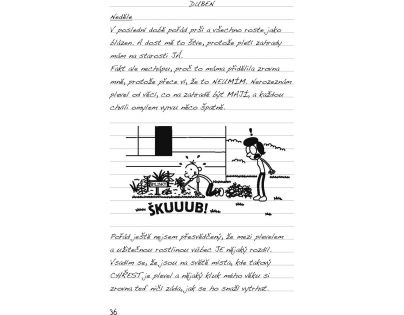 DUBEN
Neděle
V poslední době pořád prší a všechno roste jako
blázen. A dost mě to štve, protože pletí zahrady
mám na starosti JÁ.
Fakt ale nechápu, proč to máma přidělila zrovna
mně, protože přece ví, že to NEUMÍM. Nerozeznám
plevel od věcí, co na zahradě být MAJÍ, a každou
chvíli omylem vyrvu něco špatně.
ŠKUUUB!
Pořád ještě nejsem přesvědčený, že mezi plevelem
a užitečnou rostlinou vůbec JE nějaký rozdíl.
Vsadím se, že jsou na světě místa, kde takový
CHŘEST je plevel a nějaký kluk mého věku si
zrovna teď ničí záda, jak se ho snaží vytrhat.
36